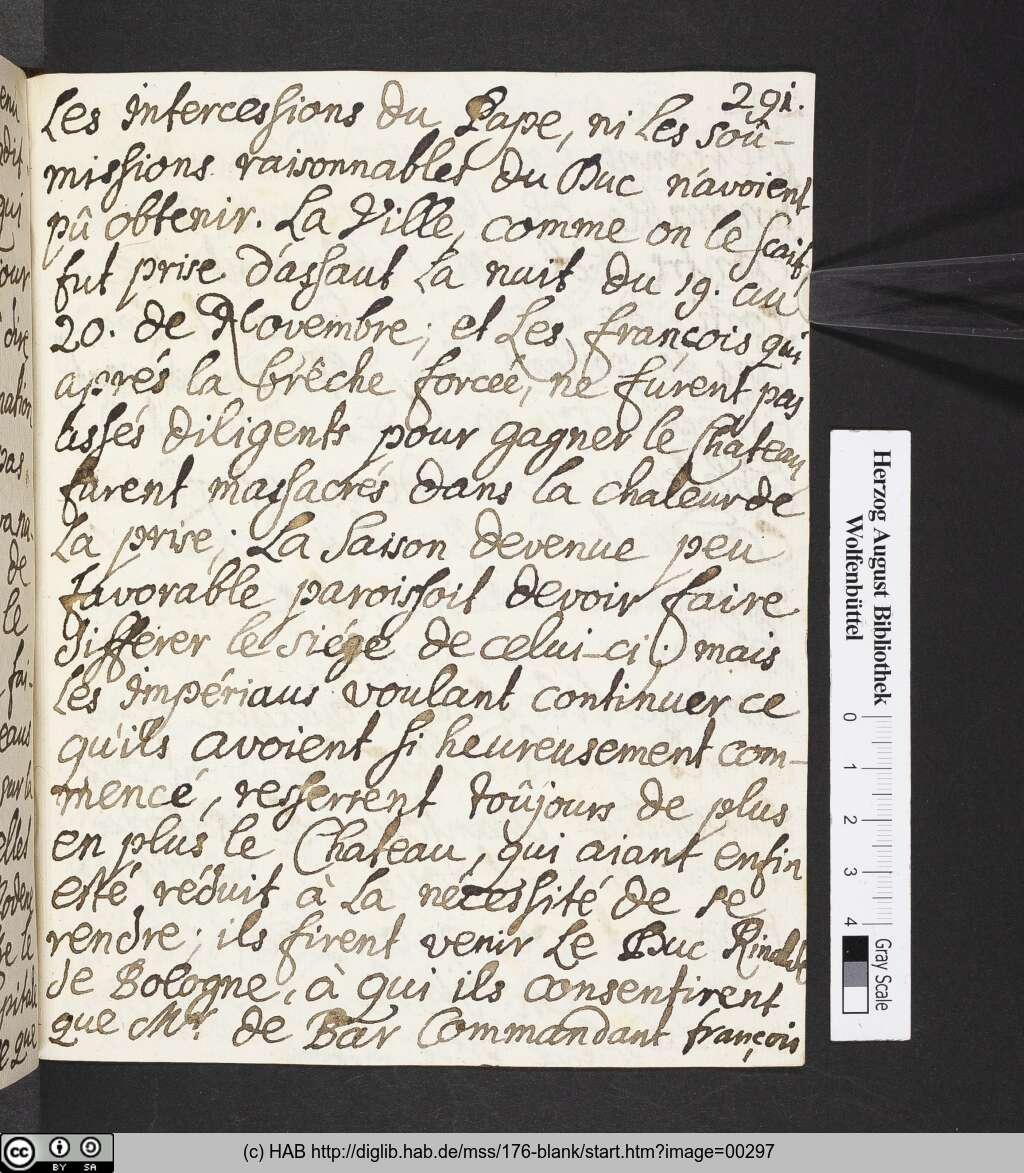 291.
Les Intercessions du Pape, ni Les soû-
missions raisonnables du Duc n'avoient
pû obtenir. La Ville, comme on le scait,
fut prise d'assaut La nuit du 19. au
20. de Novembre; et Les françois qui
aprés la brêche forceé, ne fúrent pas
assés diligents pour gagner le Château
furent massacrés dans la chaleur de
La prise; La saison devenue peu
favorable paroissoit devoir faire
differer le siége de celui-ci; mais
Les Impériaus voulant continuer ce
qu'ils avoient si heureusement com-
mencé, resserrent toûjours de plus
en plus le Chateau, qui aiant enfin
esté réduit à La nécessité de se
rendre; ils firent venir Le Duc Rinalde
de Bologne, à qui ils consentirent
que Mr. de Bar Commandant françois
Herzog August Bibliothek
Wolfenbüttel
0 1 2 3 4
Gray Scale
cc BY SA
(c) HAB http://diglib.hab.de/mss/176-blank/start.htm?image=00297